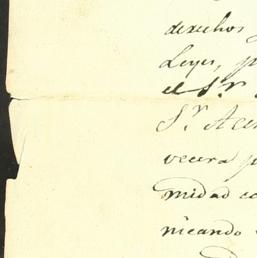 derechos
Leyes, p
el S.r
S.r Acen
vecera p
midad co
nicando